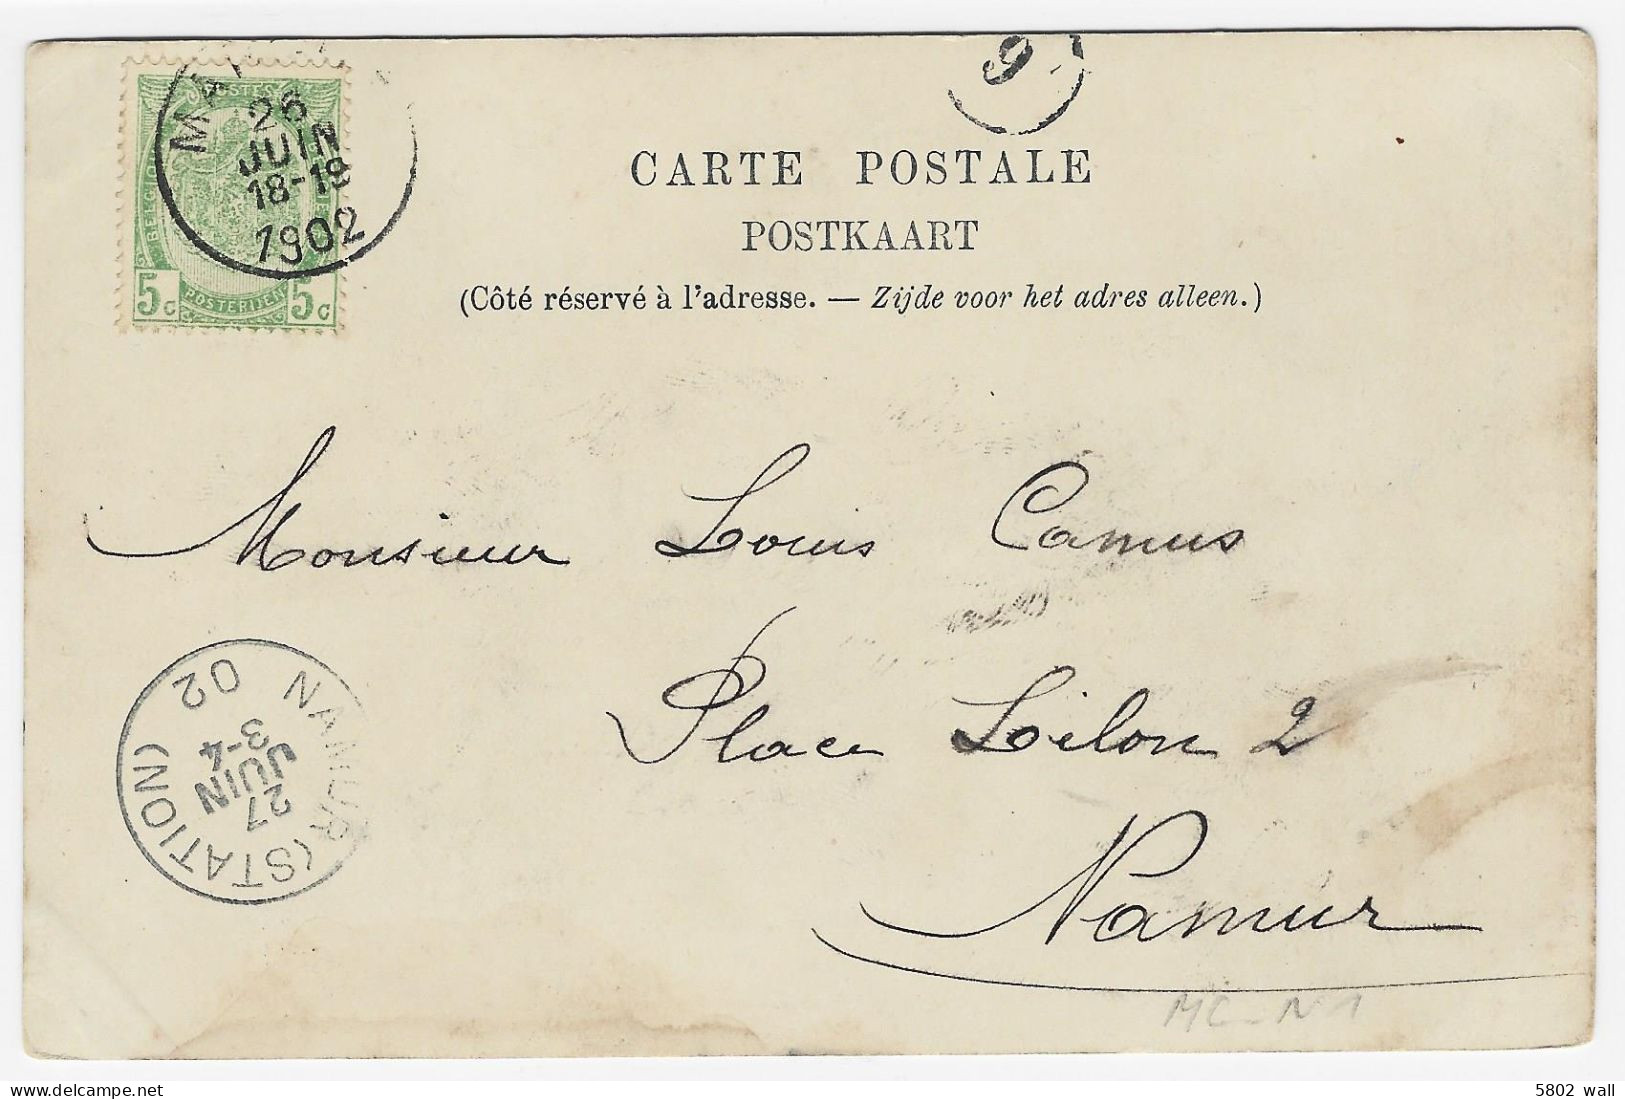 9
26
JUIN
18-19
1902
POSTES
BELGIQUE
POSTERIJEN
5c 5c
CARTE POSTALE
POSTKAART
(Côté réservé à l'adresse. — Zijde voor het adres alleen.)
Monsieur Louis Camus
Place Lilon 2
Namur
NAMUR (STATION)
27
JUIN
3-4
02
MC-N1
5802 wall